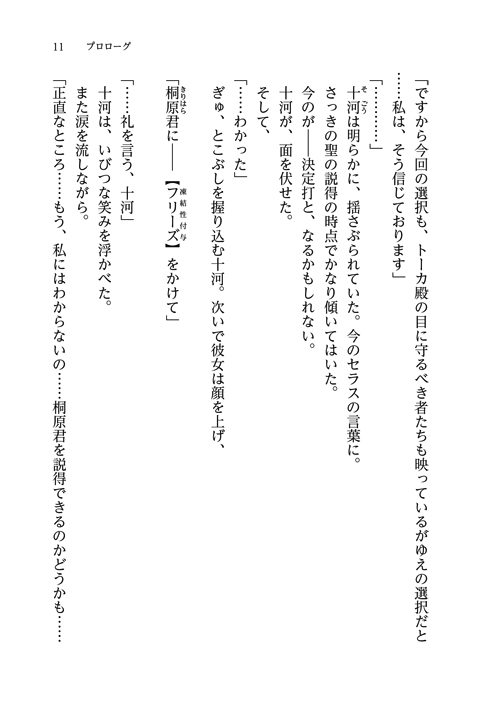 11 プロローグ
「ですから今回の選択も、トーカ殿の目に守るべき者たちも映っているがゆえの選択だと
……私は、そう信じております」
「…………」
十河は明らかに、揺さぶられていた。今のセラスの言葉に。
そごう
さっきの聖の説得の時点でかなり傾いてはいた。
今のが――決定打と、なるかもしれない。
十河が、面を伏せた。
そして、
「……わかった」
ぎゅ、とこぶしを握り込む十河。次いで彼女は顔を上げ、
「桐原君に――【フリーズ】をかけて」
きりはら
凍結性付与
「……礼を言う、十河」
十河は、いびつな笑みを浮かべた。
また涙を流しながら。
「正直なところ……もう、私にはわからないの……桐原君を説得できるのかどうかも……